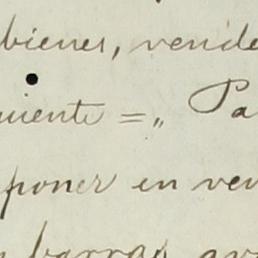 bienes, vende
uiente = „ Pa
poner en ven
barras